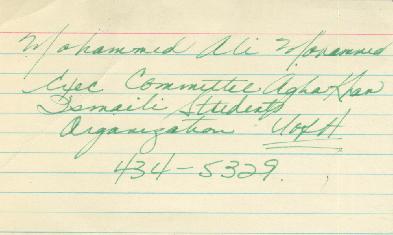 Mohammed Ali Mohammed
Exec Committee Agha Khan
Ismaili Students
Organization U of H
434-5329